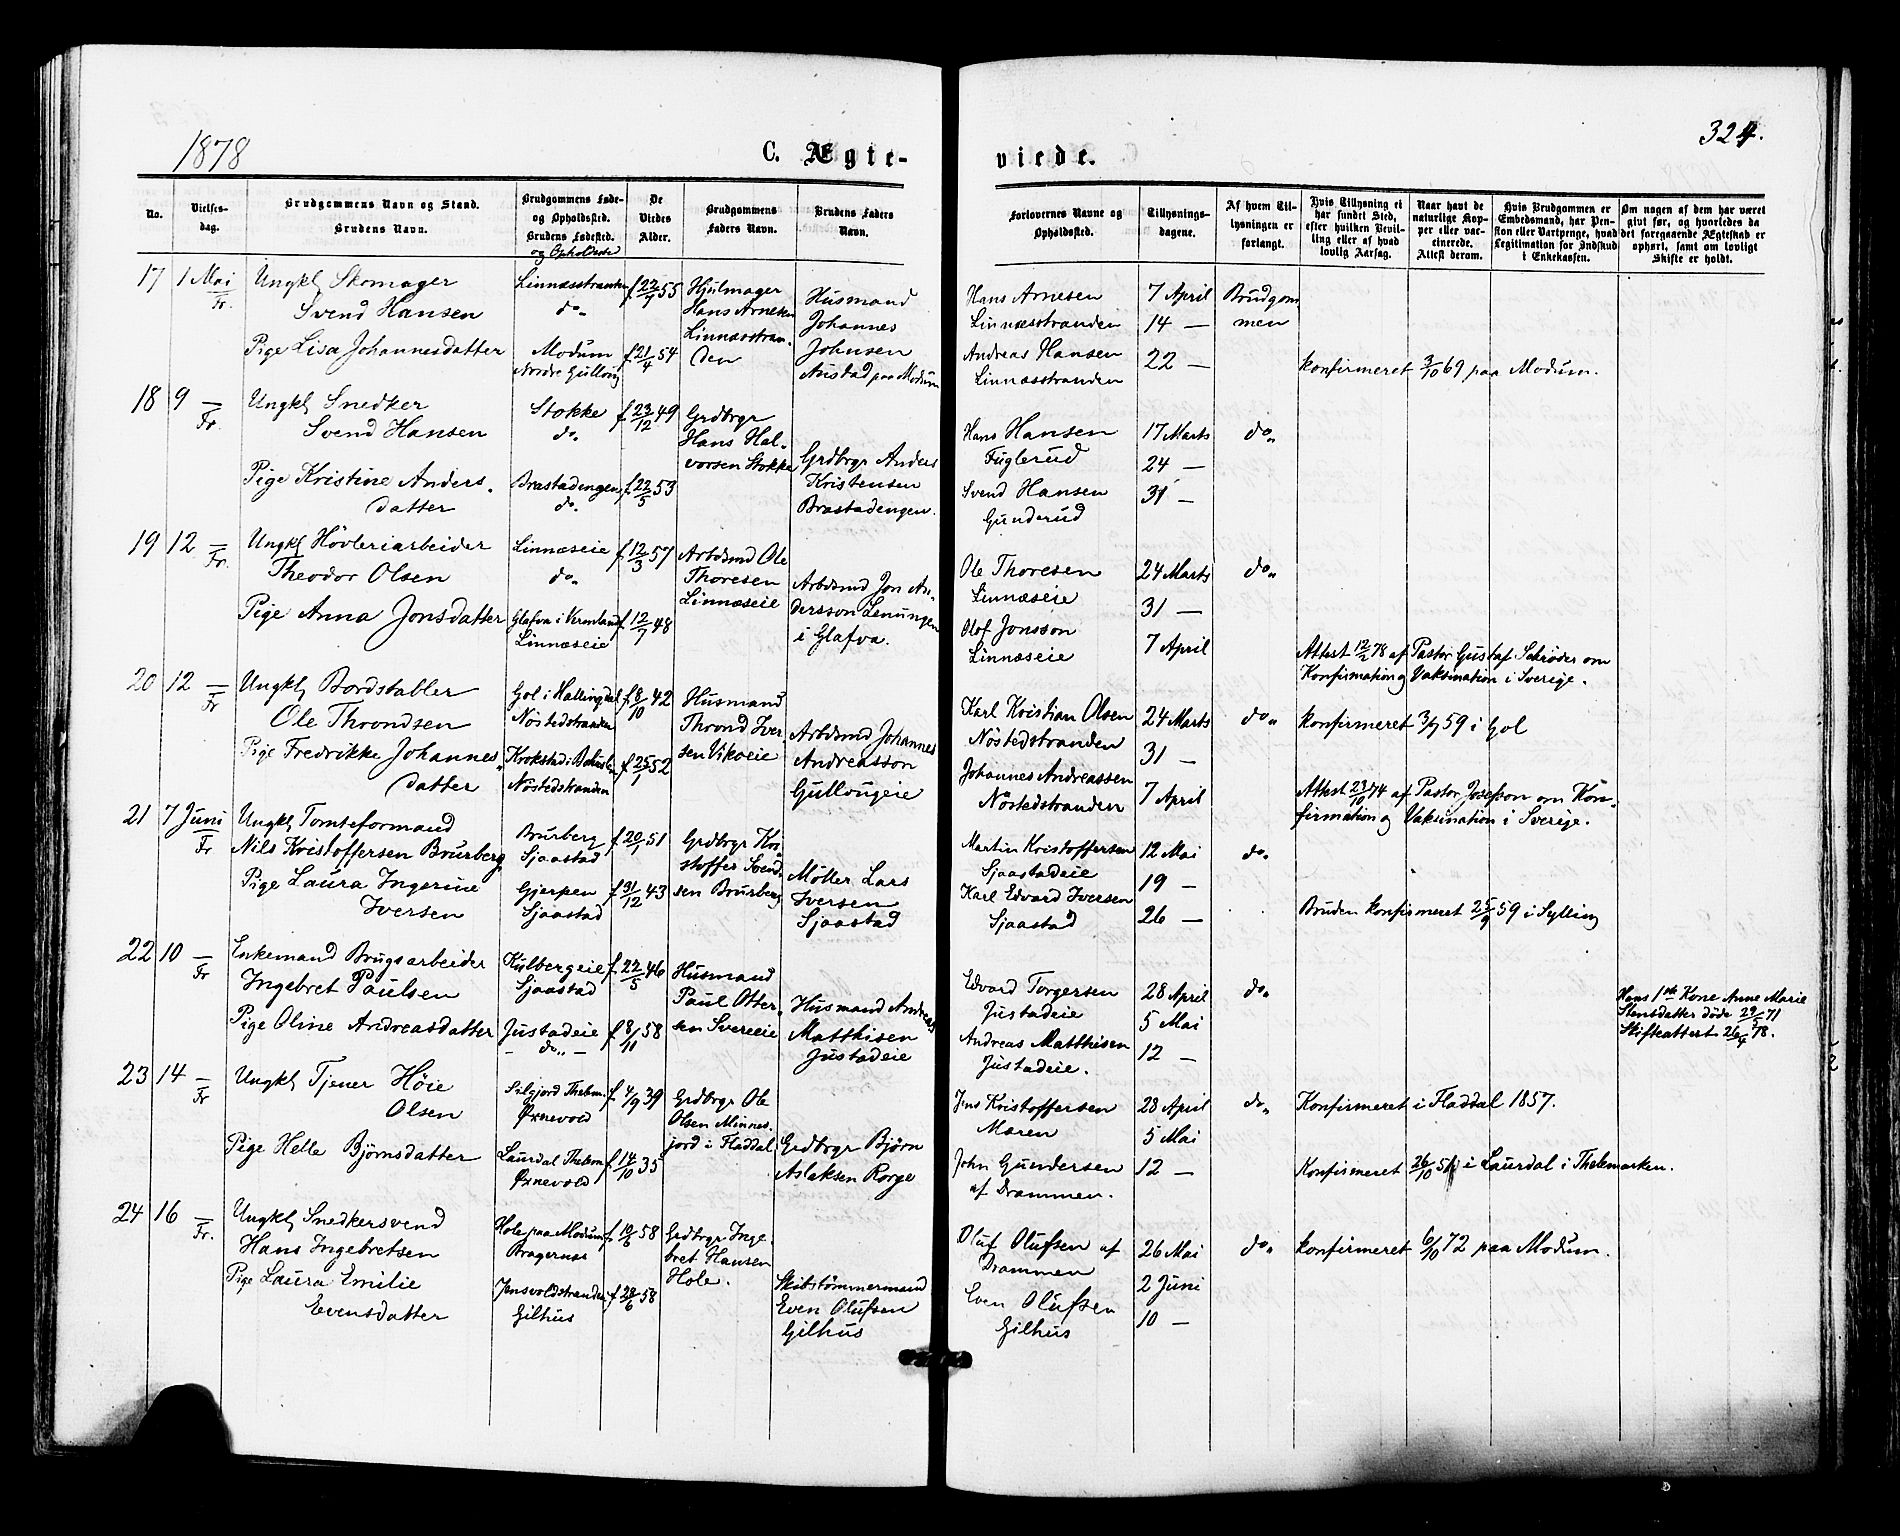 1878
C. Ægte-
viede.
324.
No.
Vielses-
dag.
Brudgommens Navn og Stand.
Brudens Navn.
Brudgommens Føde-
og Opholdssted.
Brudens Fødested.
og Opholdssted
De
Viedes
Alder.
Brudgommens
Faders Navn.
Brudens Faders
Navn.
Forlovernes Navne og
Opholdssted.
Tillysnings-
dagene.
Af hvem Til-
lysningen er
forlangt.
Hvis Tillysning ei
har fundet Sted,
efter hvilken Bevil-
ling eller af hvad
lovlig Aarsag.
Naar havt de
naturlige Kop-
per eller vac-
cinerede.
Attest derom.
Hvis Brudgommen er
Embedsmand, har Pen-
sion eller Vartpenge, hvad
Legitimation for Indskud
i Enkekassen.
Om nogen af dem har været
gift før, og hvorledes da
det foregaaende Ægteskab er
ophørt, samt om lovligt
Skifte er holdt.
17 1 Mai Fr.
Ungkl Skomager
Svend Hansen
Pige Lisa Johannesdatter
Linnæsstranden
do
Modum
Nordre Gullaug
f 22/7 55
f 21/4 54
Hjulmager
Hans Arnesen
Linnæsstran-
den
Husmand
Johannes
Johnsen
Austad paa Modum
Hans Arnesen
Linnæsstranden
Andreas Hansen
Linnæsstranden
7 April
14 —
22 —
Brudgom
men
konfirmeret 3/10 69 paa Modum.
18 9 — Fr.
Ungkl Snedker
Svend Hansen
Pige Kristine Anders-
datter
Stokke
do
Brastadengen
do
f 23/12 49
f 22/5 53
Grdbrgr
Hans Hal-
vorsen Stokke
Grdbrgr Anders
Kristensen
Brastadengen.
Hans Hansen
Fuglerud
Svend Hansen
Gunderud
17 Marts
24 —
31 —
do
19 12 — Fr.
Ungkl Høvleriarbeider
Theodor Olsen
Pige Anna Jonsdatter
Linnæseie
do
Glafva i Vermland
Linnæseie
f 12/3 57
f 12/7 48
Arbdsmd Ole
Thoresen
Linnæseie
Arbdsmd Jon An-
dersson Lenungen
i Glafva.
Ole Thoresen
Linnæseie
Olof Jonsson
Linnæseie
24 Marts
31 —
7 April
do
Attest 12/2 78 af Pastor Gustaf Schrøder om
Konfirmation og Vaksination i Sverige.
20 12 — Fr
Ungkl Bordstabler
Ole Throndsen
Pige Fredrikke Johannes-
datter
Gol i Hallingdal
Nøstedstranden
Krokstad i Bahuslen
Nøstedstranden
f 8/10 42
f 25/1 52
Husmand
Thrond Iver
sen Vikseie
Arbdsmd Johannes
Andreasson
Gullougeie
Karl Kristian Olsen
Nøstedstranden
Johannes Andreassen
Nøstedstranden
24 Marts
31 —
7 April
do
konfirmeret 3/7 59 i Gol
Attest 23/10 74 af Pastor Josefson om Kon-
firmation og Vaksination i Sverige.
21 7 Juni Fr
Ungkl Tomteformand
Nils Kristoffersen Brurberg
Pige Laura Ingerine
Iversen
Brurberg
Sjaastad
Gjerpen
Sjaastad
f 20/1 51
f 31/12 43
Grdbrgr Kri
stoffer Svend-
sen Brurberg
Møller Lars
Iversen
Sjaastad
Martin Kristoffersen
Sjaastadeie
Karl Edvard Iversen
Sjaastad
12 Mai
19 —
26 —
do
Bruden konfirmeret 25/9 59 i Sylling
22 10 — Fr
Enkemand Brugsarbeider
Ingebret Paulsen
Pige Oline Andreasdatter
Kulbergeie
Sjaastad
Justadeie
— do —
f 22/5 46
f 8/11 58
Husmand
Paul Otter-
sen Svereeie
Husmand Andreas
Matthisen
Justadeie
Edvard Torgersen
Justadeie
Andreas Matthisen
Justadeie.
28 April
5 Mai
12 —
do
Hans 1ste Kone Anne Marie
Stensdatter døde 29/5 71
Skifteattest 26/4 78.
23 14 — Fr
Ungkl Tjener Høie
Olsen
Pige Helle Bjørnsdatter
Silgjord Thelem.
Ørnevold
Laurdal Thelem
Ørnevold
f 4/9 39
f 14/10 35
Grdbrgr Ole
Olsen Minnes-
jord i Fladdal
Grdbrgr Bjørn
Aslaksen Rorge
Jens Kristoffersen
Maren
John Gundersen
af Drammen.
28 April
5 Mai
12 —
do
Konfirmeret i Fladdal 1857.
Konfirmeret 26/10 51 i Laurdal i Thelemarken.
24 16 — Fr.
Ungkl Snedkersvend
Hans Ingebretsen
Pige Laura Emilie
Evensdatter
Hole paa Modum
Bragernes
Jensvoldstranden
Gilhus
f 19/6 58
f 28/6 58
Grdbrgr Inge-
bret Hansen
Hole.
Skibstømmermand
Even Olufsen
Gilhus
Oluf Olufsen af
Drammen
Even Olufsen
Gilhus
26 Mai
2 Juni
10 —
do
konfirmeret 6/10 72 paa Modum.